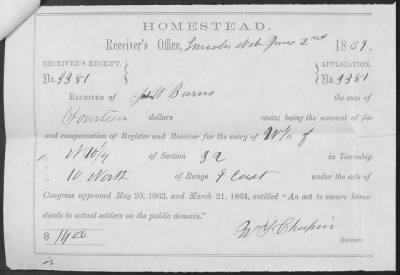 HOMESTEAD.
Receiver's Office, Lincoln Neb June 2nd 1869.
RECEIVER'S RECEIPT, APPLICATION,
No. 3381 No. 3381
RECEIVED OF W Burns the sum of
Fourteen dollars cents; being the amount of fee
and compensation of Register and Receiver for the entry of W ½ of
N W ¼ of Section 32 in Township
10 North of Range 9 East under the acts of
Congress approved May 20, 1862, and March 21, 1864, entitled "An act to secure home-
steads to actual settlers on the public domain."
$ 14.00 Chapin
Receiver.